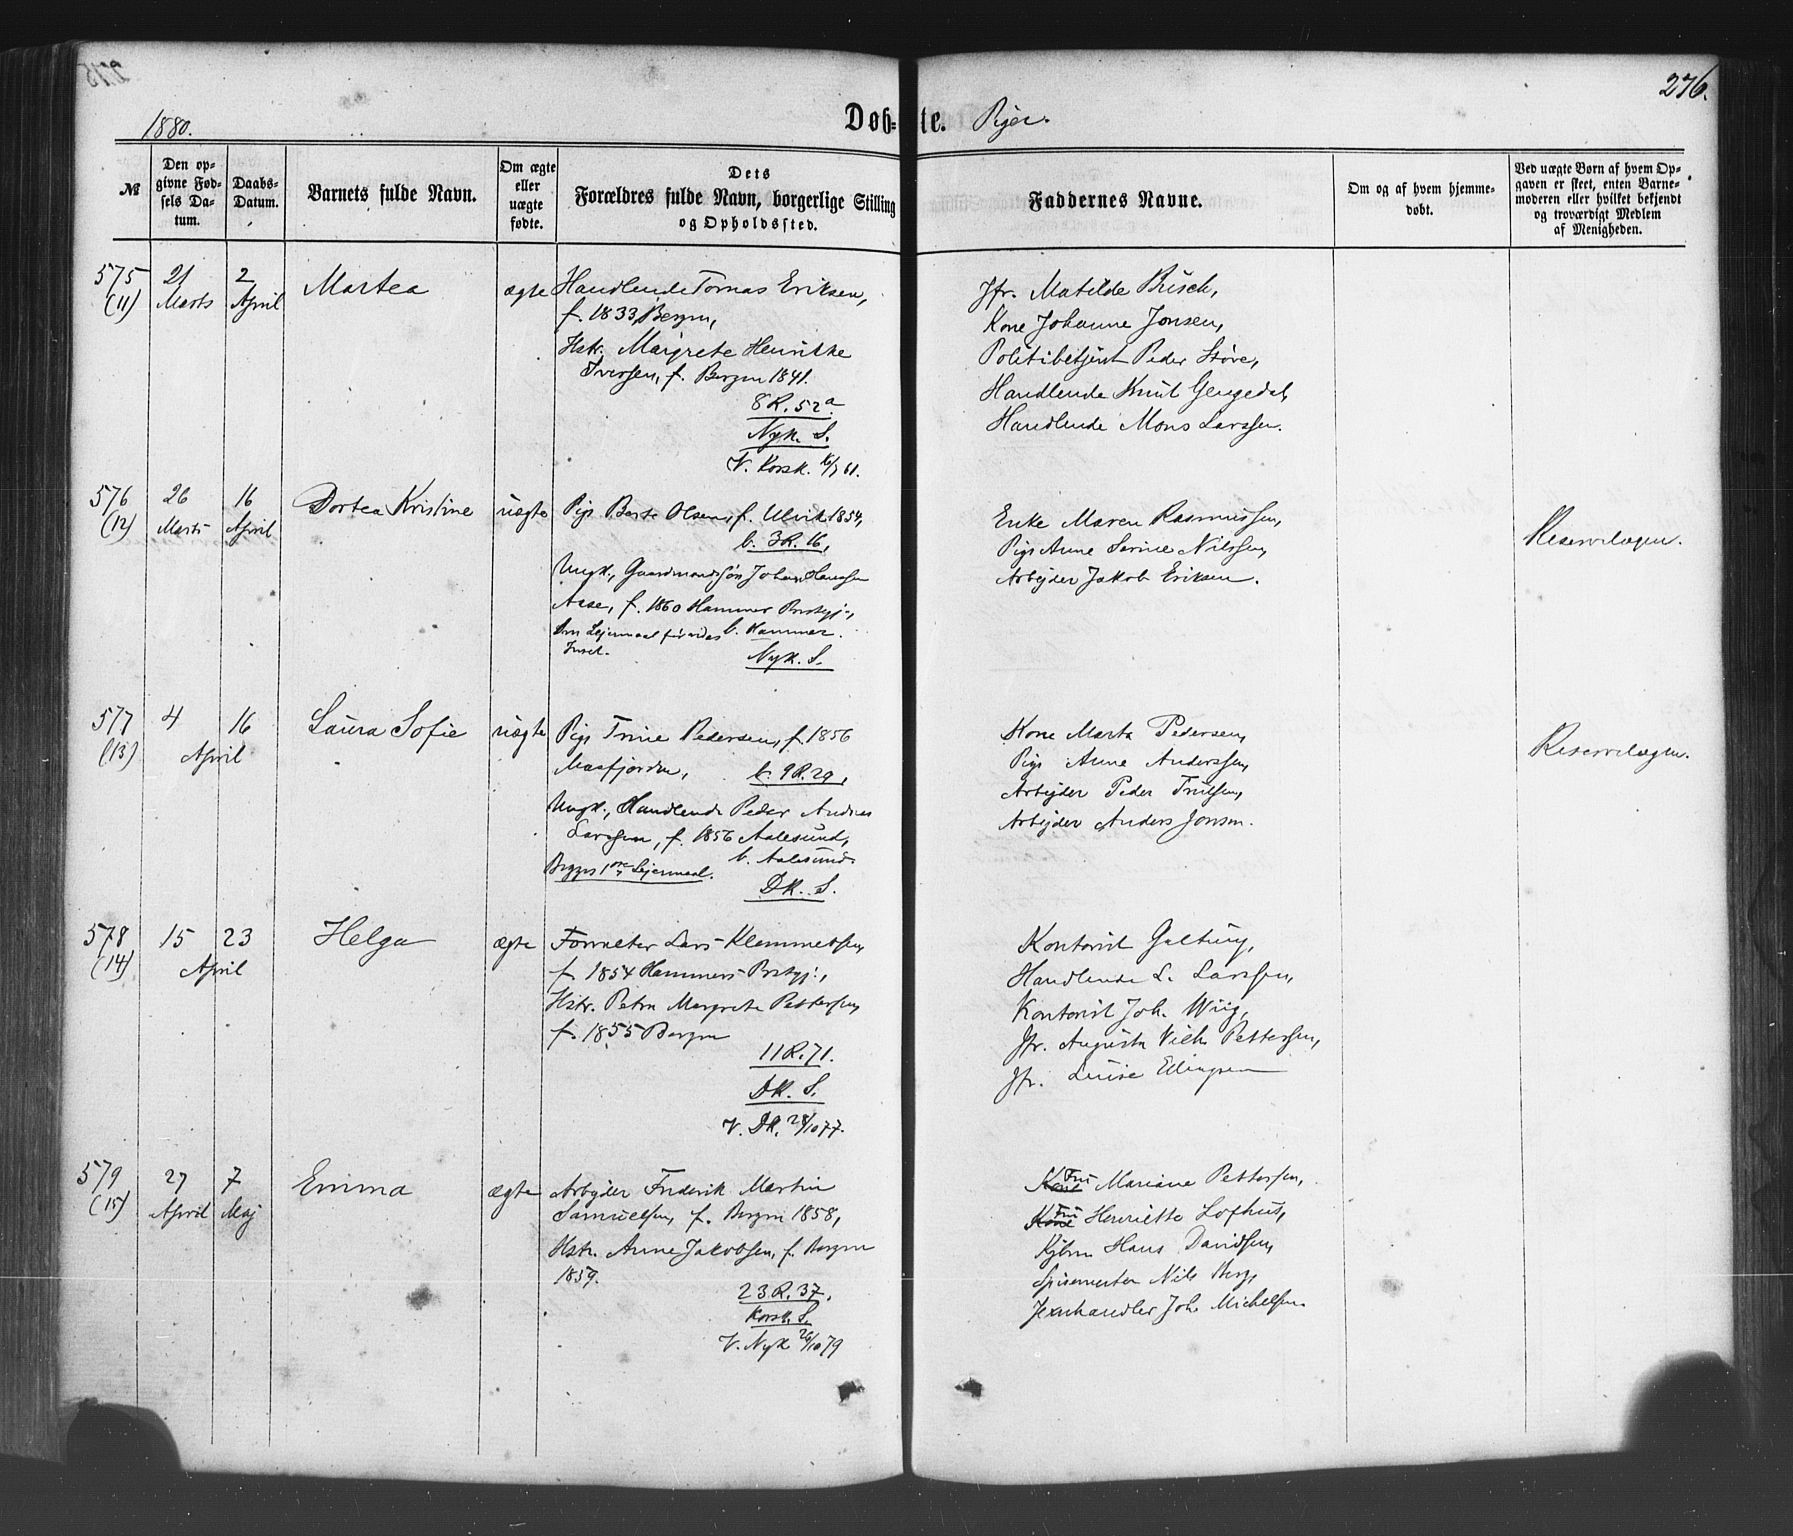 276.
1880.
Døb=te. Piger.
№
Den opgivne Fødsels Datum.
Daabs-Datum.
Barnets fulde Navn.
Om ægte eller uægte fødte.
Dets Forældres fulde Navn, borgerlige Stilling og Opholdssted.
Faddernes Navne.
Om og af hvem hjemmedøbt.
Ved uægte Børn af hvem Opgaven er skeet, enten Barnemoderen eller hvilket bekjendt og troværdigt Medlem af Menigheden.
575 (11)
21 Marts
2 April
Martea
ægte
Handlende Tomas Eriksen,
f. 1833 Bergen,
Hstr. Margrete Henrikke
Iversen, f. Bergen 1841.
8 R. 52a
Nyk. S.
V. Korsk. 61.
Jfr. Matilde Büsch,
Kone Johanne Jonsen,
Politibetjent Peder Støve,
Handlende Knut Gengedal,
Handlende Mons Larssen.
576 (12)
26 Marts
16 April
Dortea Kristine
uægte
Pige Berte Olsen, f. Ulvik 1854,
b. 3 R. 16,
Ungk., Gaardmandssøn Johan Hansen
Aase, f. 1860 Hammer Prstgj.,
b. Hammer.
Nyk. S.
Enke Maren Rasmussen,
Pige Anne Serine Nilssen,
Arbejder Jakob Eriksen.
Reservelægen.
577 (13)
4
16
April
Laura Sofie
uægte
Pige Trine Pedersen, f. 1856
Masfjorden, b. 9 R. 29,
Ungk., Handlende Peder Andreas
Larssen, f. 1856 Aalesund,
b. Aalesund.
Begges 1ste Lejermaal.
DK. S.
Kone Marta Pedersen,
Pige Anne Anderssen,
Arbejder Peder Trulsen,
Arbejder Anders Jonsen.
Reservelægen.
578 (14)
15
23
April
Helga
ægte
Forvalter Lars Klemmetsen,
f. 1854 Hammers Prstgj.,
Hstr. Petra Margrete Pettersen,
f. 1855 Bergen
11 R. 71.
DK. S.
V. DK. 28/10 77.
Kontorist Galtung,
Handlende L. Larssen,
Kontorist Joh. Wiig,
Jfr. Augusta Vilh. Pettersen,
Jfr. Luise Ellingsen
579 (15)
27 April
7 Maj
Emma
ægte
Arbejder Frederik Martin
Samuelsen, f. Bergen 1858,
Hstr. Anne Jakobsen, f. Bergen
1859.
23 R. 37.
Korsk. S.
V. Nyk 26/10 79
Kone Fru Mariane Pettersen,
Kone Fru Henriette Lofthus,
Kjøbm Hans Davidsen,
Spisevert Nils Berg,
Jernhandler Joh. Michelsen.